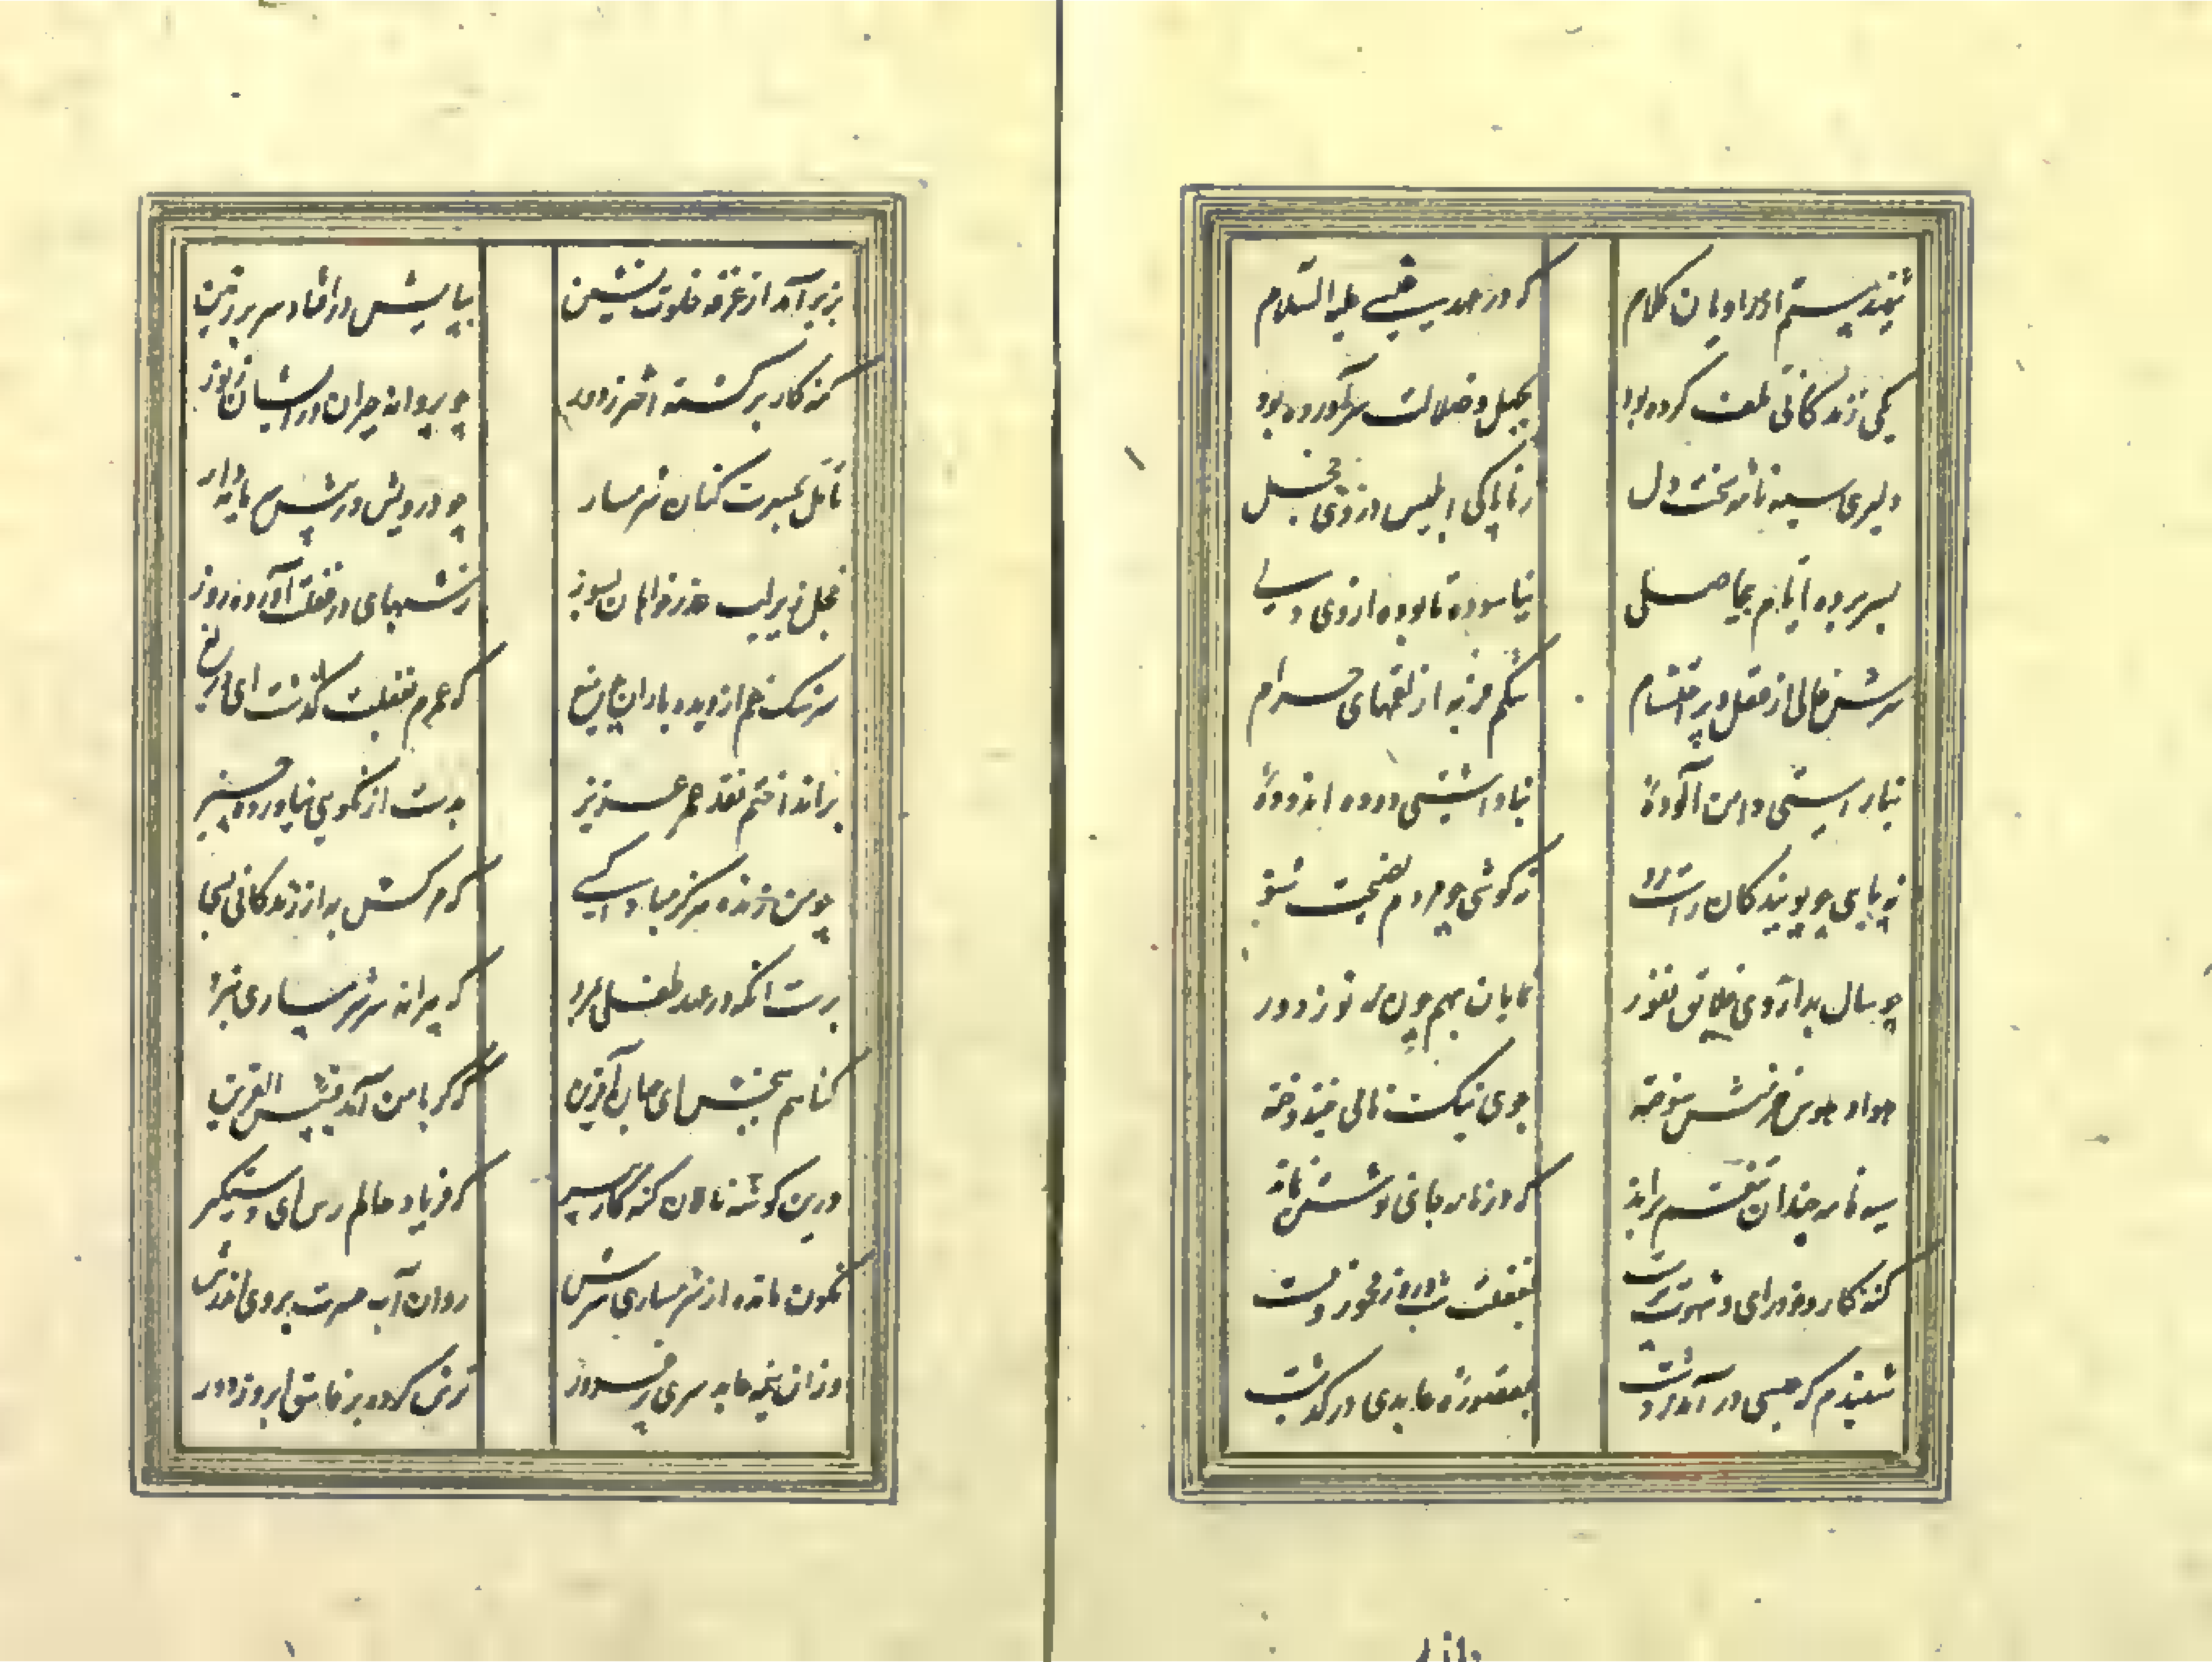 شنیدستم از راویان کلام که در عهد عیسی علیه السلام
یکی زندگانی تلف کرده بود بجهل و ضلالت سرآورده بود
دلیری سیه نامه سخت دل زناپاکی ابلیس از وی خجل
بسر برده ایام بیحاصلی نیاسوده تا بوده از وی دلی
سرش خالی از عقل و پر احتشام شکم فربه از لقمهای حرام
بناراستی دامن آلودهٔ بناداشتی دوده اندودهٔ
نه پایی چو پویندگان راست رو نه گوشی چو مردم نصیحت شنو
چو سال بد از وی خلایق نفور نمایان بهم چون مه نو ز دور
هوا و هوس خرمنش سوخته جوی نیکنامی نیندوخته
سیه نامه چندان تنعم براند که در نامه جای نوشتن نماند
گنه کار و خودرای و شهوت پرست بغفلت شب و روز مخمور و مست
شنیدم که عیسی درآمد ز دشت بمقصورهٔ عابدی درگذشت
بزیر آمد از غرفه خلوت نشین بپایش در افتاد سر بر زمین
گنه کار برگشته اختر ز دور چو پروانه حیران در ایشان ز نور
تامل بحسرت کنان شرمسار چو درویش در پیش سرمایه دار
خجل زیر لب عذر خواهان بسوز ز شبهای در غفلت آورده روز
سرشک غم از دیده باران چو میغ که عمرم بغفلت گذشت ای دریغ
برانداختم نقد عمر عزیز بدست از نکویی نیاورده چیز
چو من زنده هرگز مبادا کسی که مرگش به از زندگانی
برست آنکه در عهد طفلی بمرد که پیرانه سر شرمساری نبرد
گناهم ببخش ای جهان آفرین که گر با من آید فبئس القرین
درین گوشه نالان گنه کار پیر که فریاد حالم رس ای دستگیر
نگون مانده از شرمساری سرش روان آب حسرت بروی اندرش
وزان نیمه عابد سری پر غرور ترش کرده بر فاسق ابرو ز دور